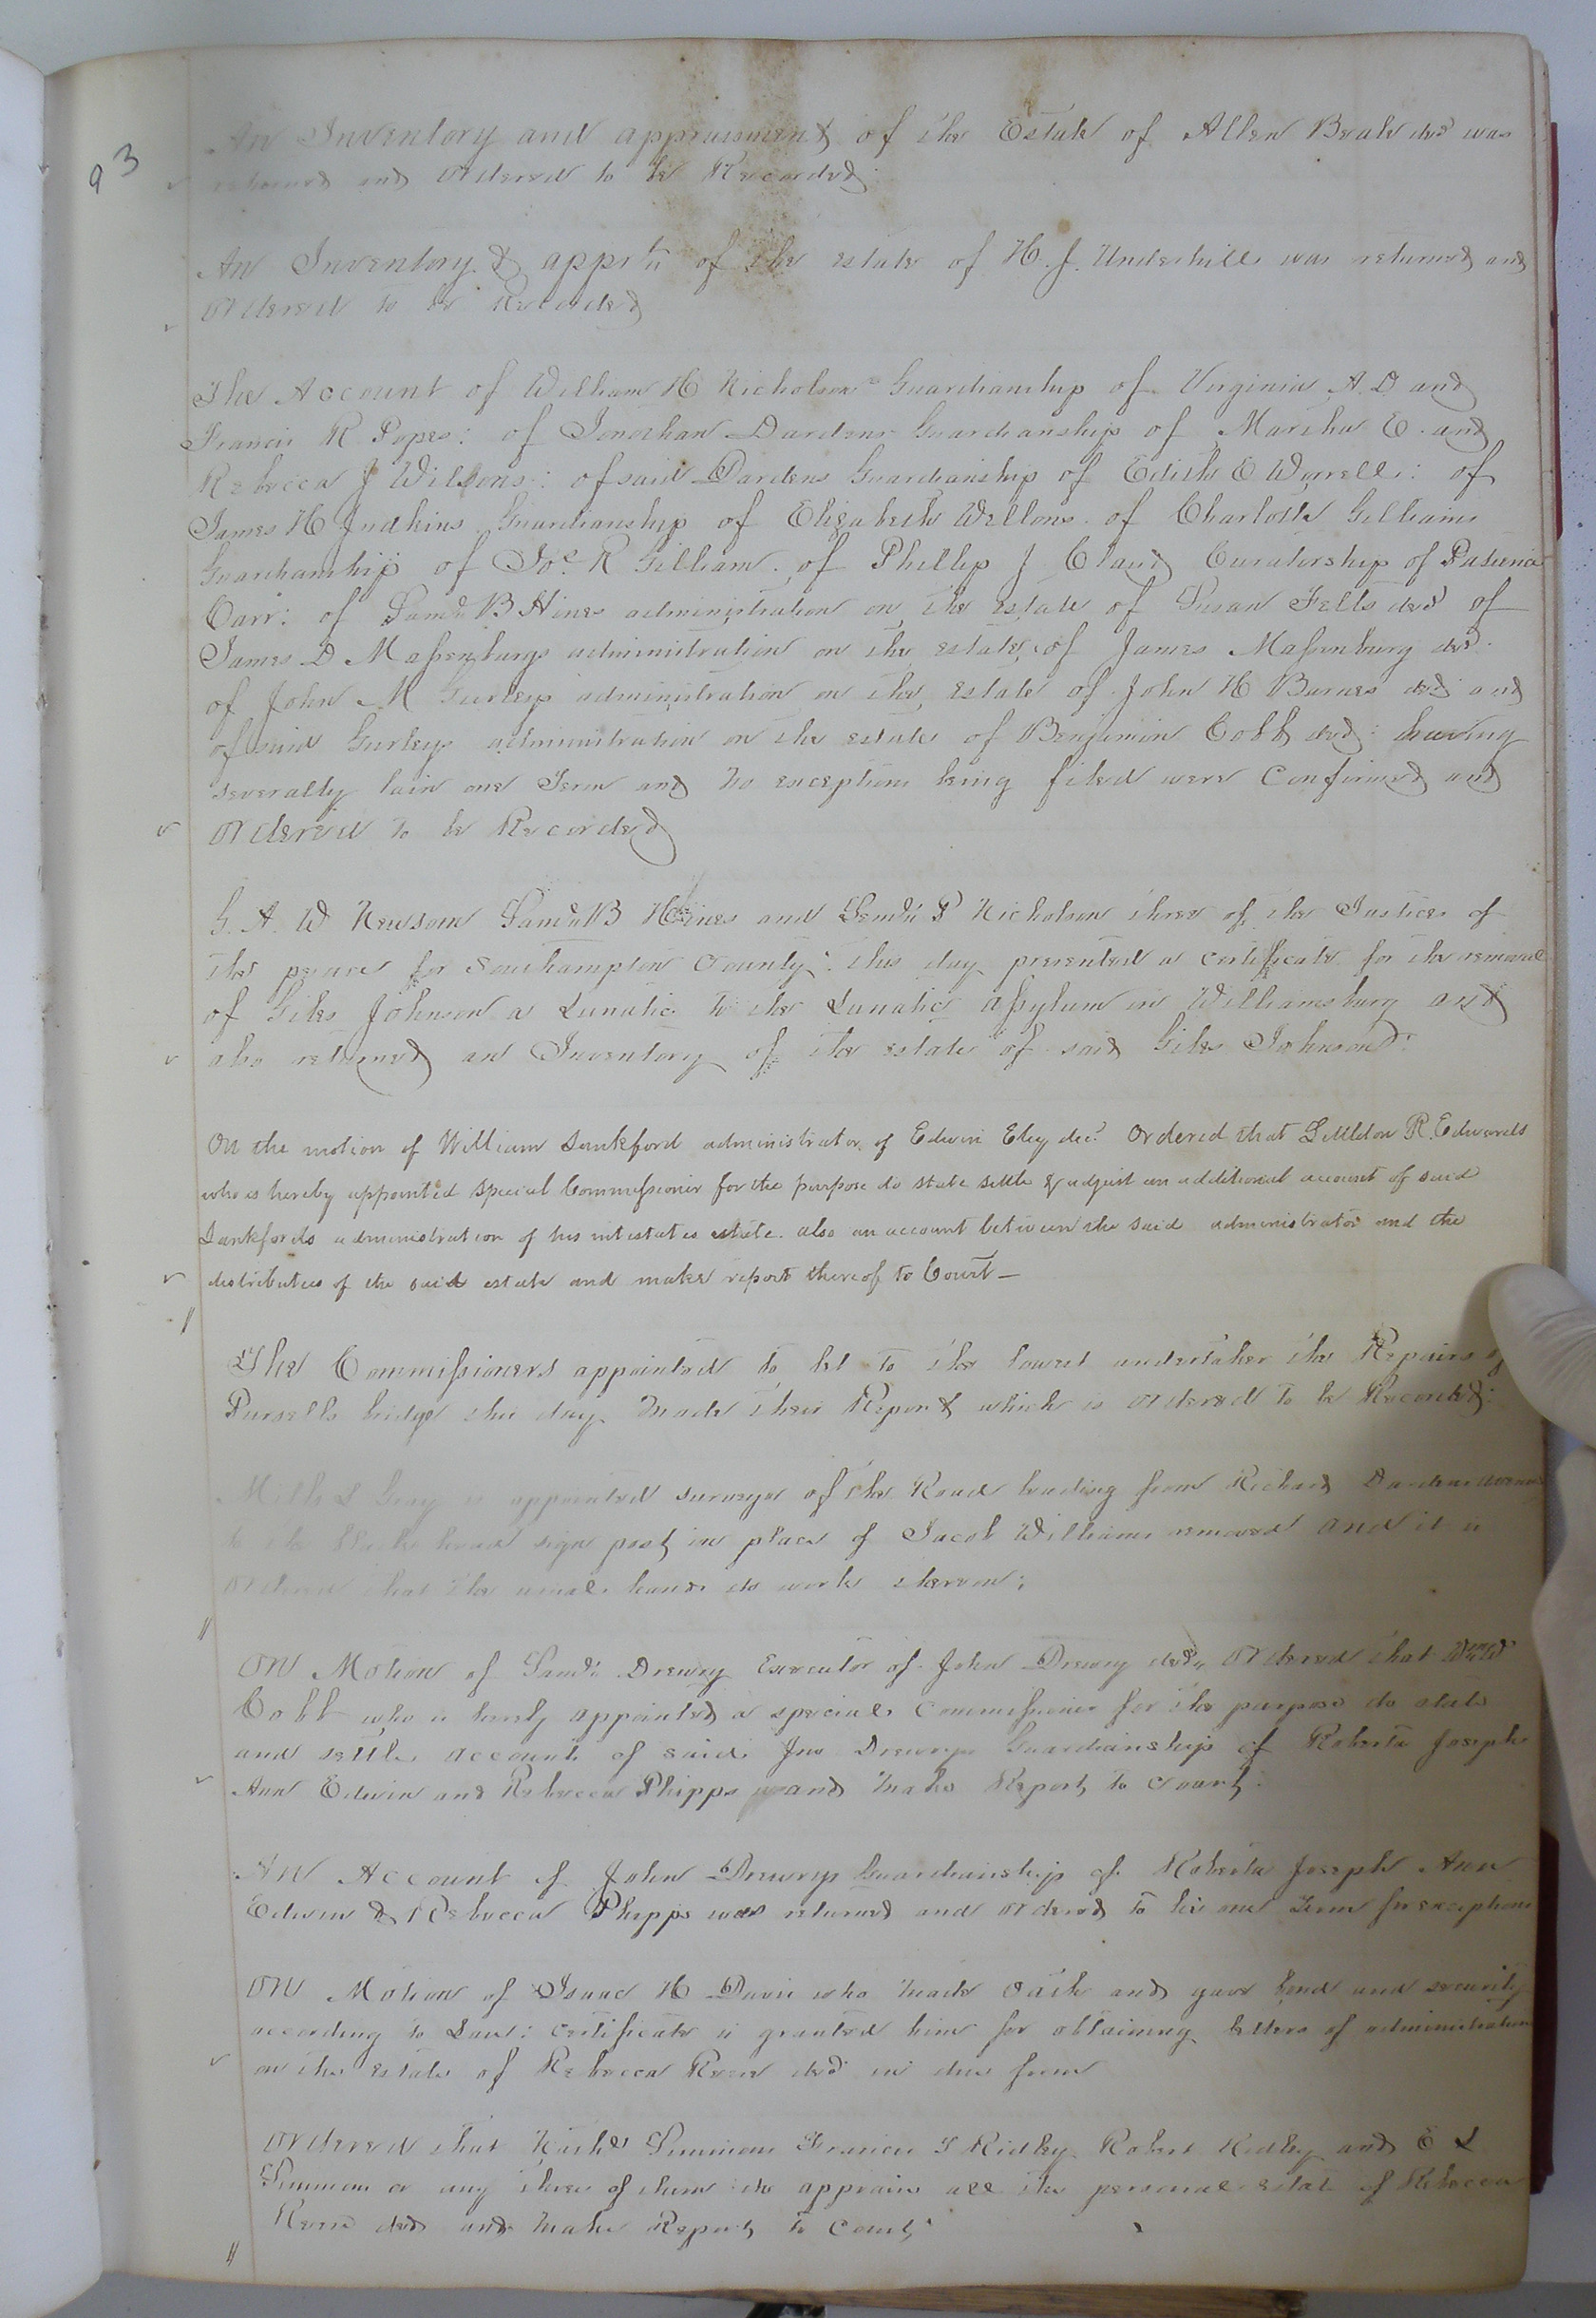 93
An Inventory and appraisment of the Estate of Allen Beale decd was
returned and ordered to be Recorded.
An Inventory & apprmt of the estate of H. J. Underhill was returned and
ordered to be Recorded
The Account of William H Nicholsons Guardianship of Virginia A. D and
Francis R Popes: of Jonathan Dardens Guardianship of Martha E. and
Rebecca J Wilsons: of said Dardens Guardianship of Edith E Worrell: of
James H Judkins Guardianship of Elizabeth Wellons. of Charlotte Gilliams
Guardianship of Jos. R Gilliam. of Phillip J Claud Curatorship of
Carr: of Saml B Hines administration on the estate of Susan Felts decd of
James D Massenburgs administration on the estate of James Massenburg decd.
of John M Gurleys administration on the estate of John H Barnes decd and
of said Gurleys administration on the estate of Benjamin Cobb decd: having
severally lain one Term and no exceptions being filed were Confirmed and
ordered to be Recorded
G. A. W Newsom Saml B Hines and Saml P Nicholson three of the Justices of
the peace for Southampton County: this day presented a certificate for the removal
of Giles Johnson a Lunatic to the Lunatic assylum in Williamsburg and
also returned an Inventory of the estate of said Giles Johnson:
On the motion of William Lankford administrator of Edwin Eley decd Ordered that Littleton R. Edwards
who is hereby appointed special Commissioner for the purpose do state settle & adjust an additional account of said
Lankfords administration of his intestates estate. also an account between the said administrator and the
distributees of the said estate and make report thereof to Court—
The Commissioners appointed to let to the lowest undertaker the Repairs of
Pursells bridge this day made their Report which is ordered to be Recorded:
Mills L Gray is appointed surveyor of the Road leading from Richard Dardens
to the head sign post in place of Jacob Williams removed and it is
ordered that the usual hands do work thereon;
On Motion of Saml Drewry Executor of John Drewry decd, ordered that
Cobb who is hereby appointed a special Commissioner for the purpose do state
and settle account of said Jno Drewrys Guardianship of Roberta Joseph
Ann Edwin and Rebecca Phipps and make Report to Court.
An Account of John Drewrys Guardianship of Roberta Joseph Ann
Edwin & Rebecca Phipps was returned and ordered to lie one Term for exceptions
On Motion of Isaac H Davis who made Oath and gave bond and security
according to Law: certificate is granted him for obtaining letters of administration
on the estate of Rebecca Reese decd in due form
Ordered that Simmons Francis T Ridley Robert Ridley and E L
Simmons or any three of them do appraise all the personal estate of Rebecca
Reese decd and make Report to Court.